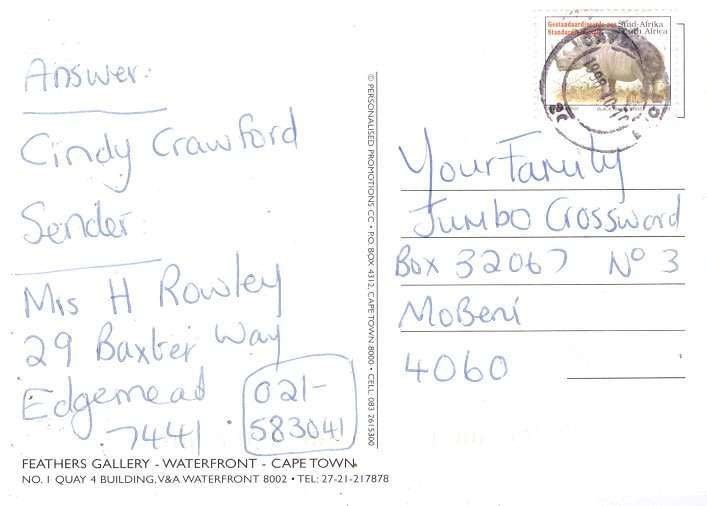 Answer:
Cindy Crawford
Sender:
Mrs H Rowley
29 Baxter Way
Edgemead
7441
021-
583041
FEATHERS GALLERY - WATERFRONT - CAPE TOWN.
NO. 1 QUAY 4 BUILDING, V&A WATERFRONT 8002 • TEL: 27-21-217878
© PERSONALISED PROMOTIONS CC • P.O. BOX 4312, CAPE TOWN 8000 • CELL: 083 2615300
Suid-Afrika
South Africa
Your Family
Jumbo Crossword
Box 32067 No 3
MoBeni
4060